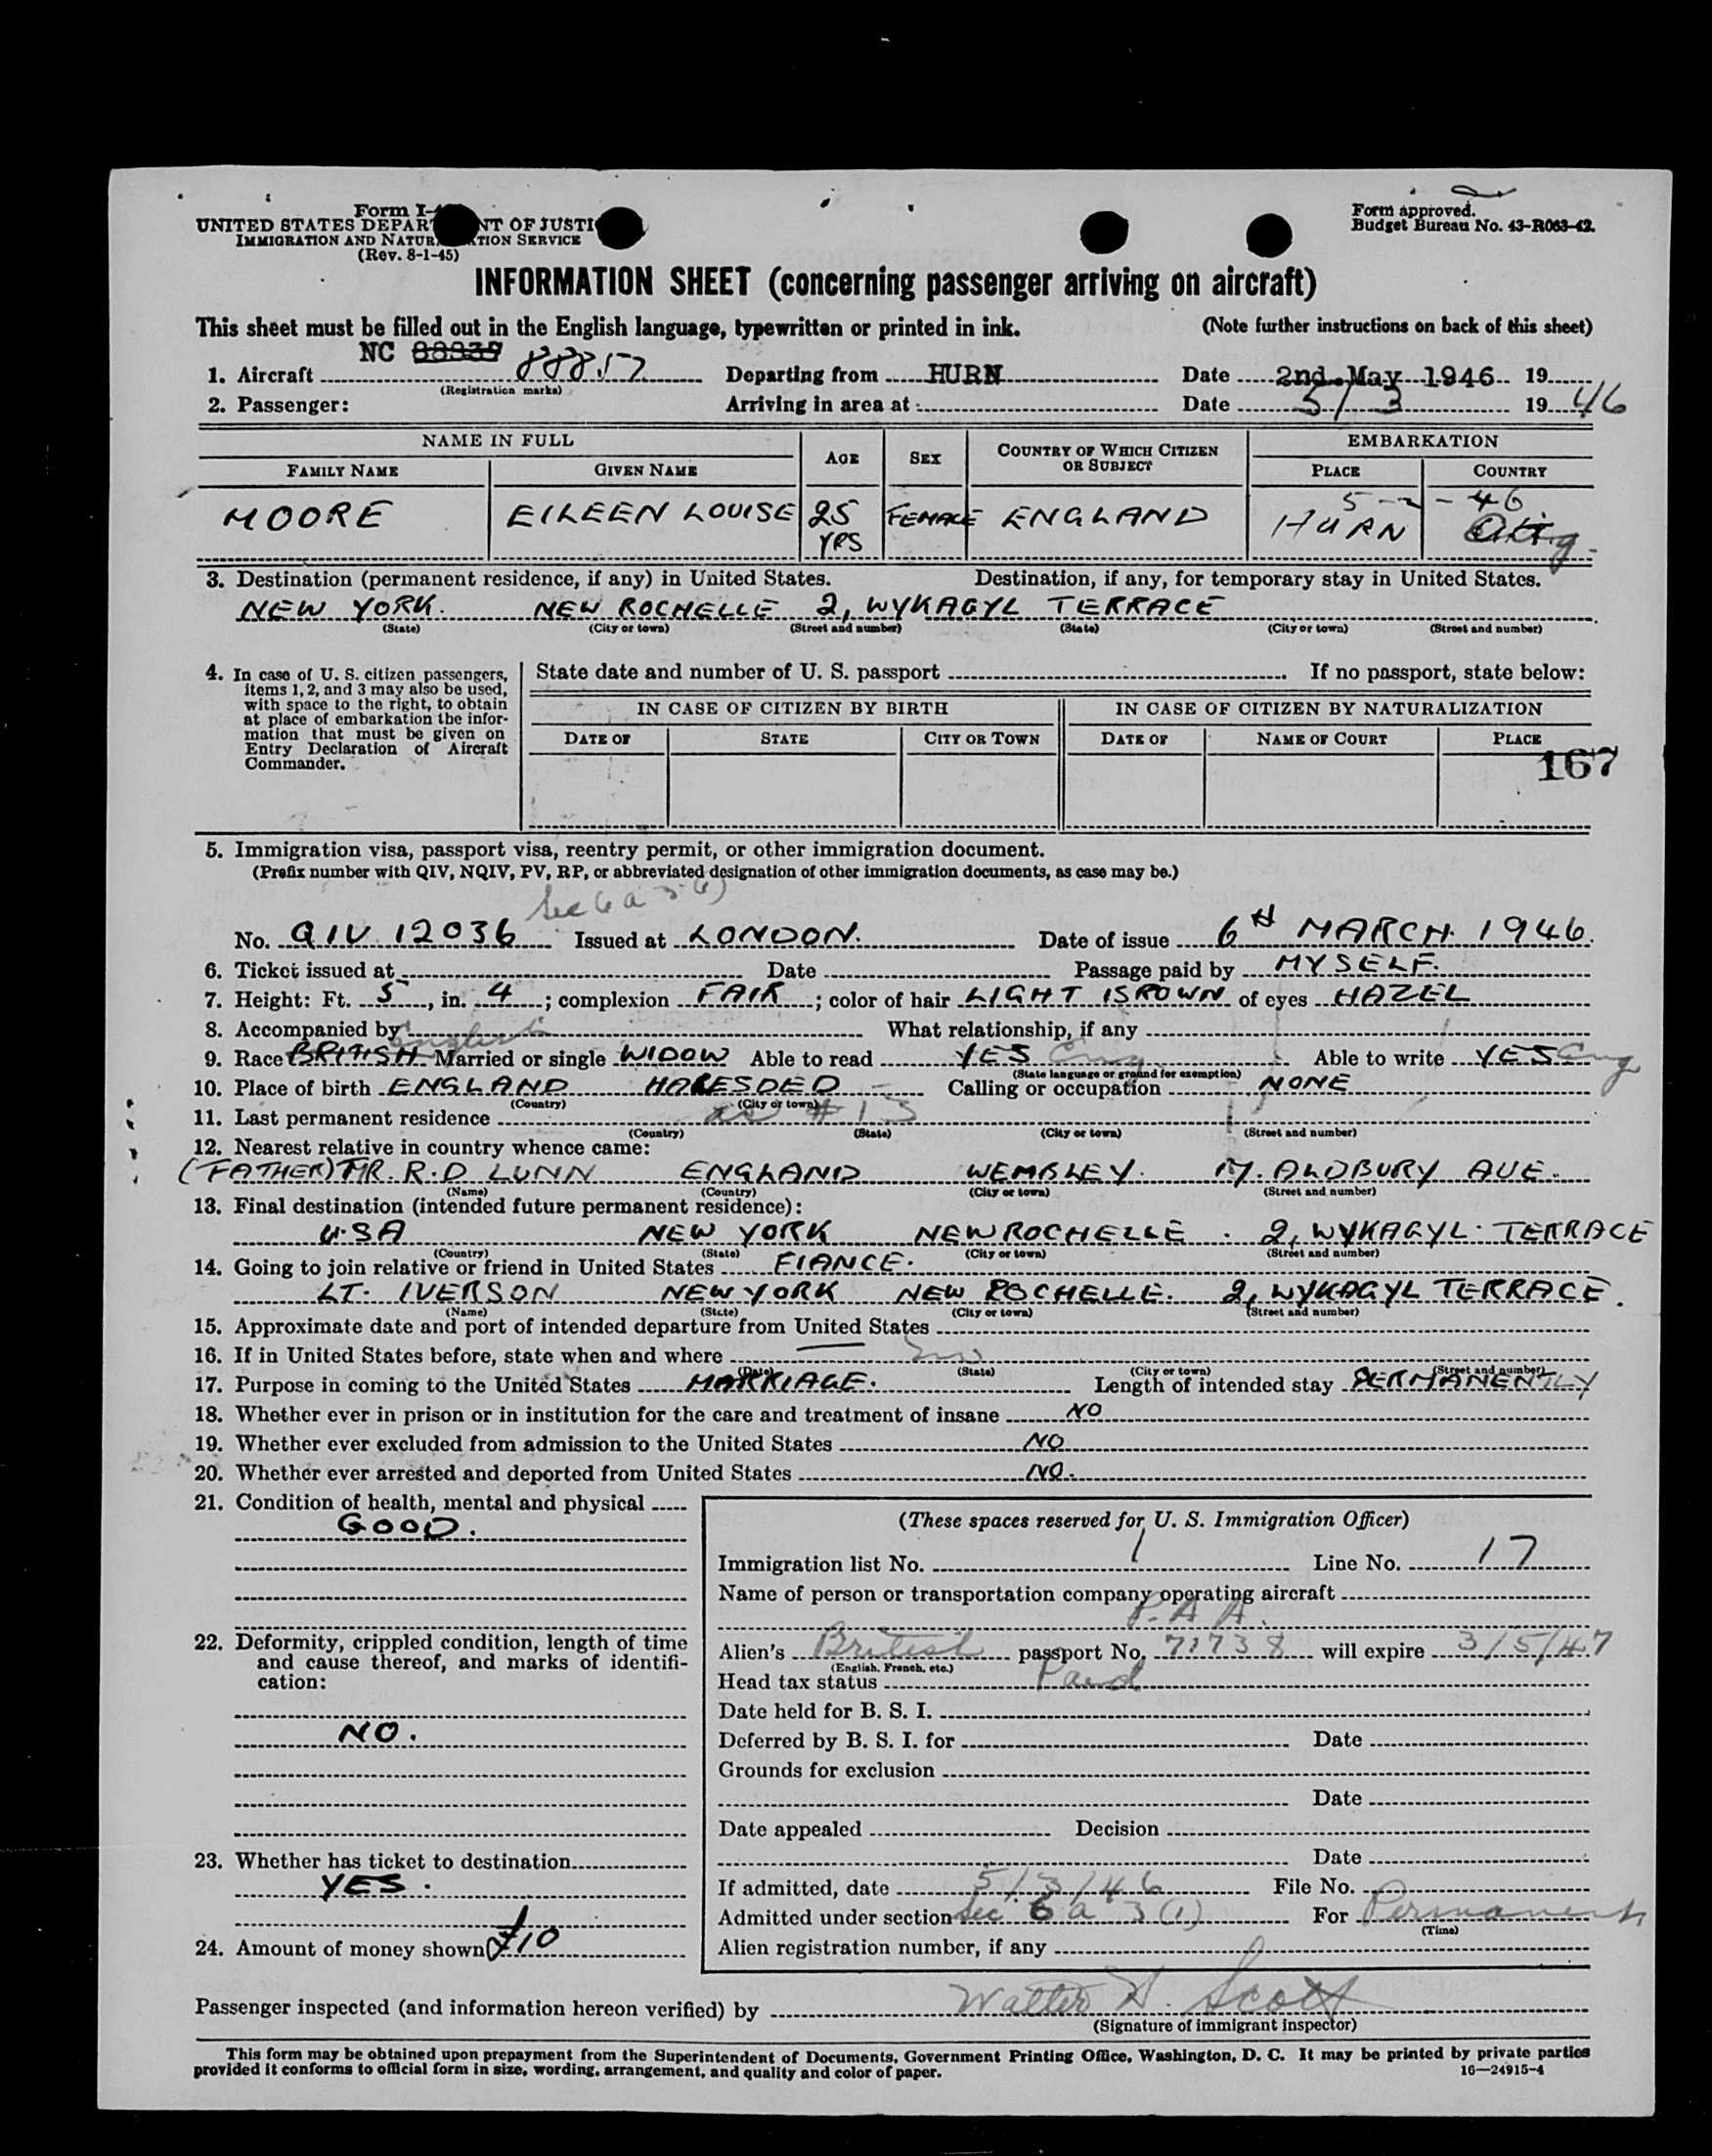 Form I-
UNITED STATES DEPAR NT OF JUSTI
IMMIGRATION AND NATUR TION SERVICE
(Rev. 8-1-45)
Form approved.
Budget Bureau No. 43-R063-42.
INFORMATION SHEET (concerning passenger arriving on aircraft)
This sheet must be filled out in the English language, typewritten or printed in ink. (Note further instructions on back of this sheet)
1. Aircraft NC 88857 Departing from HURN Date 2nd. May 1946 19
(Registration marks)
2. Passenger: Arriving in area at : Date 5/3 1946
NAME IN FULL AGE SEX COUNTRY OF WHICH CITIZEN OR SUBJECT EMBARKATION
FAMILY NAME GIVEN NAME PLACE COUNTRY
5-2-46
MOORE EILEEN LOUISE 25 YRS FEMALE ENGLAND HURN
3. Destination (permanent residence, if any) in United States. Destination, if any, for temporary stay in United States.
NEW YORK. NEW ROCHELLE 2, WYKAGYL TERRACE
(State) (City or town) (Street and number) (State) (City or town) (Street and number)
4. In case of U. S. citizen passengers, items 1, 2, and 3 may also be used, with space to the right, to obtain at place of embarkation the information that must be given on Entry Declaration of Aircraft Commander.
State date and number of U. S. passport If no passport, state below:
IN CASE OF CITIZEN BY BIRTH IN CASE OF CITIZEN BY NATURALIZATION
DATE OF STATE CITY OR TOWN DATE OF NAME OF COURT PLACE
167
5. Immigration visa, passport visa, reentry permit, or other immigration document.
(Prefix number with QIV, NQIV, PV, RP, or abbreviated designation of other immigration documents, as case may be.)
Sec 6 a 3 (1)
No. QIV 12036 Issued at LONDON. Date of issue 6TH MARCH 1946.
6. Ticket issued at Date Passage paid by MYSELF.
7. Height: Ft. 5, in. 4; complexion FAIR; color of hair LIGHT BROWN of eyes HAZEL
8. Accompanied by What relationship, if any
English
9. Race BRITISH Married or single WIDOW Able to read YES Eng Able to write YES Eng
(State language or ground for exemption)
10. Place of birth ENGLAND HARLESDED Calling or occupation NONE
(Country) (City or town)
11. Last permanent residence as #13
(Country) (State) (City or town) (Street and number)
12. Nearest relative in country whence came:
(FATHER) MR. R.D LUNN ENGLAND WEMBLEY. 17. ALDBURY AVE.
(Name) (Country) (City or town) (Street and number)
13. Final destination (intended future permanent residence):
U.S.A NEW YORK NEW ROCHELLE. 2, WYKAGYL. TERRACE
(Country) (State) (City or town) (Street and number)
14. Going to join relative or friend in United States FIANCE.
LT. IVERSON NEW YORK NEW ROCHELLE. 2, WYKAGYL TERRACE.
(Name) (State) (City or town) (Street and number)
15. Approximate date and port of intended departure from United States
16. If in United States before, state when and where
(Date) (State) (City or town) (Street and number)
17. Purpose in coming to the United States MARRIAGE. Length of intended stay PERMANENTLY
18. Whether ever in prison or in institution for the care and treatment of insane NO
19. Whether ever excluded from admission to the United States NO
20. Whether ever arrested and deported from United States NO.
21. Condition of health, mental and physical
GOOD.
22. Deformity, crippled condition, length of time and cause thereof, and marks of identification:
NO.
23. Whether has ticket to destination
YES.
24. Amount of money shown £10
(These spaces reserved for U. S. Immigration Officer)
Immigration list No. 1 Line No. 17
Name of person or transportation company operating aircraft
P.A.A.
Alien's British passport No. 71738 will expire 3/5/47
(English, French, etc.)
Head tax status Paid
Date held for B. S. I.
Deferred by B. S. I. for Date
Grounds for exclusion
Date
Date appealed Decision
Date
If admitted, date 5/3/46 File No.
Admitted under section Sec 6 a 3 (1) For Permanent
(Time)
Alien registration number, if any
Passenger inspected (and information hereon verified) by Walter H. Scott
(Signature of immigrant inspector)
This form may be obtained upon prepayment from the Superintendent of Documents, Government Printing Office, Washington, D. C. It may be printed by private parties
provided it conforms to official form in size, wording, arrangement, and quality and color of paper. 16—24915-4